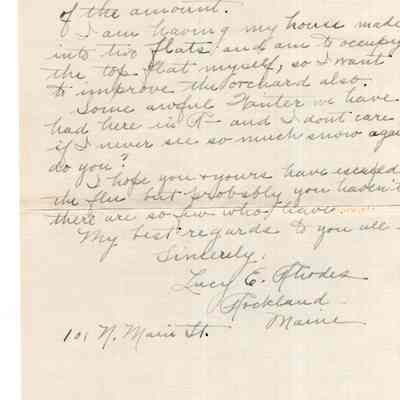 of the amount.
I am having my house made
into two flats and am to occupy
the top flat myself, so I want
to improve the orchard also.
Some awful Winter we have
had here in R- and I dont care
if I never see so much snow again
do you?
I hope you & yours have escaped
the flu but probably you haven't
there are so few who have.
My best regards to you all -
Sincerely,
Lucy E. Rhodes
Rockland
Maine
101 N. Main St.